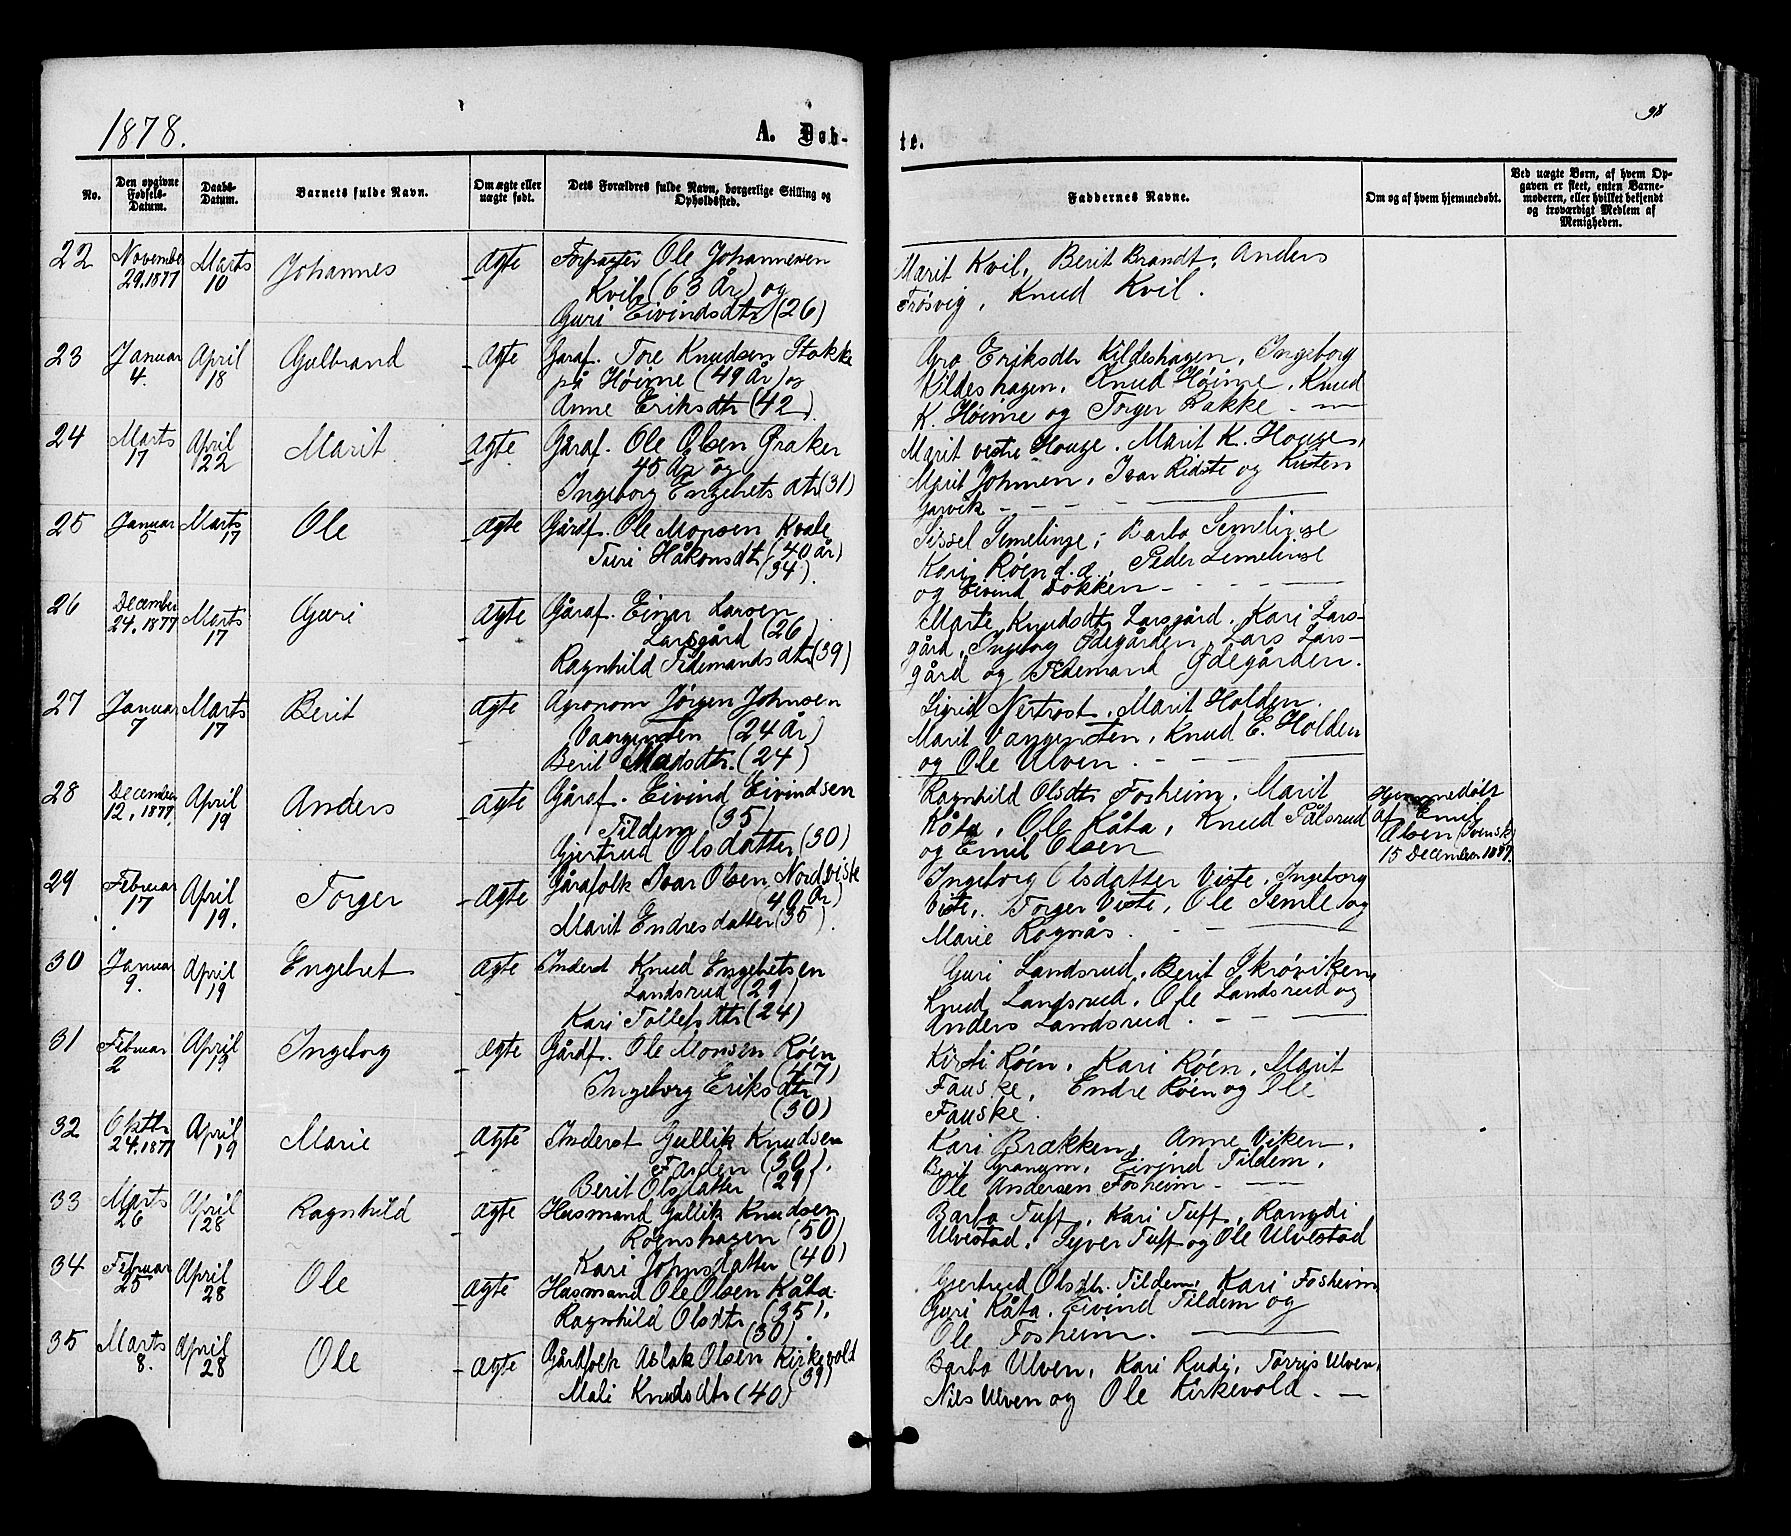 98
1878.
A. Døb-
te.
No.
Den opgivne Fødsels-Datum.
Daabs-Datum.
Barnets fulde Navn.
Om ægte eller uægte født.
Dets Forældres fulde Navn, borgerlige Stilling og Opholdssted.
Faddernes Navne.
Om og af hvem hjemmedøbt.
Ved uægte Børn, af hvem Opgaven er skeet, enten Barnemoderen, eller hvilket bekjendt og troværdigt Medlem af Menigheden.
22 November 29.1877 Marts 10 Johannes ægte Forpagter Ole Johannesen
Kvil (63 År) og
Guri Eivindsdtr (26)
Marit Kvil, Berit Brandt, Anders
Frøsvig, Knud Kvil.
23 Januar 4. April 18 Gulbrand ægte Gårdf. Tore Knudsen Stakke
på Høime (49 År) og
Anne Eriksdtr (42).
Gro Eriksdtr Kildeshagen, Ingeborg
Kildeshagen, Knud Høime, Knud
K. Høime og Torger Bakke
24 Marts 17 April 22 Marit ægte Gårdf. Ole Olsen Graker
45 År og
Ingeborg Engebrets dtr (31)
Marit vestre Houge, Marit K. Houge,
Marit Johnsen, Ivar Ridste og Kristen
Garvik
25 Januar 5 Marts 17 Ole ægte Gårdf. Ole Monsen Kvale
Turi Håkonsdtr (40 år)
(34).
Sissel Semelinge, Barbo Semelinge
Kari Røen d.a, Peder Semelinge
og Eivind Dokken
26 December 24.1877 Marts 17 Guri ægte Gårdf. Einar Larsen
Larsgård (26)
Ragnhild Tidemands dtr (39)
Marte Knudsdtr Larsgård, Kari Lars-
gård, Ingeborg Ødegården, Lars Lars-
gård og Tidemand Ødegården.
27 Januar 7 Marts 17 Berit ægte Agronom Jørgen Johnsen
Vangensten (24 År)
Berit Madsdtr. (24)
Sigrid Nertrost, Marit Holden.
Marit Vangensten, Knud E. Holden
og Ole Ulven.
28 December 12.1877 April 19 Anders ægte Gårdf. Eivind Eivindsen
Tildem (35)
Gjertrud Olsdatter (30)
Ragnhild Olsdtr Fosheim, Marit
Kåta, Ole Kåta, Knud Pålsrud
og Emil Olsen
Hjemmedøbt
af Emil
Olsen (Svensk)
15 December 1877.
29 Februar 17 April 19. Torger ægte Gårdfolk Ivar Olsen Nordviste
(40 År)
Marit Endresdatter (35).
Ingeborg Olsdatter Viste, Ingeborg
Viste, Torger Viste, Ole Semle og
Marie Rognås.
30 Januar 9. April 19 Engebret ægte Inderst Knud Engebretsen
Landsrud (29)
Kari Tollefs dtr (24)
Guri Landsrud, Berit Skrøviken,
Knud Landsrud, Ole Landsrud og
Anders Landsrud.
31 Februar 2 April 19 Ingeborg ægte Gårdf. Ole Monsen Røen
(47)
Ingeborg Eriksdtr
(30)
Kirsti Røen, Kari Røen, Marit
Fauske, Endre Røen og Ole
Fauske.
32 Oktbr 24.1877 April 19 Marie ægte Inderst Gullik Knudsen
Farden (30).
Berit Olsdatter (29)
Kari Brækken, Anne Viken,
Berit Granum, Eivind Tildem,
Ole Andersen Fosheim
33 Marts 26 April 28 Ragnhild ægte Husmand Gullik Knudsen
Roenshagen (50)
Kari Johnsdatter (40)
Barbo Tuff, Kari Tuff, Rangdi
Ulvestad, Syver Tuff og Ole Ulvestad
34 Februar 25 April 28 Ole ægte Husmand Ole Olsen Kåta
Ragnhild Olsdtr (35).
(30).
Gjertrud Olsdtr. Tildem, Kari Fosheim
Guri Kåta, Eivind Tildem og
Ole Fosheim.
35 Marts 8. April 28 Ole ægte Gårdfolk Aslak Olsen Kirkevold
(39)
Mali Knudsdtr (40)
Barbo Ulven, Kari Rudi, Torris Ulven,
Nils Ulven og Ole Kirkevold.